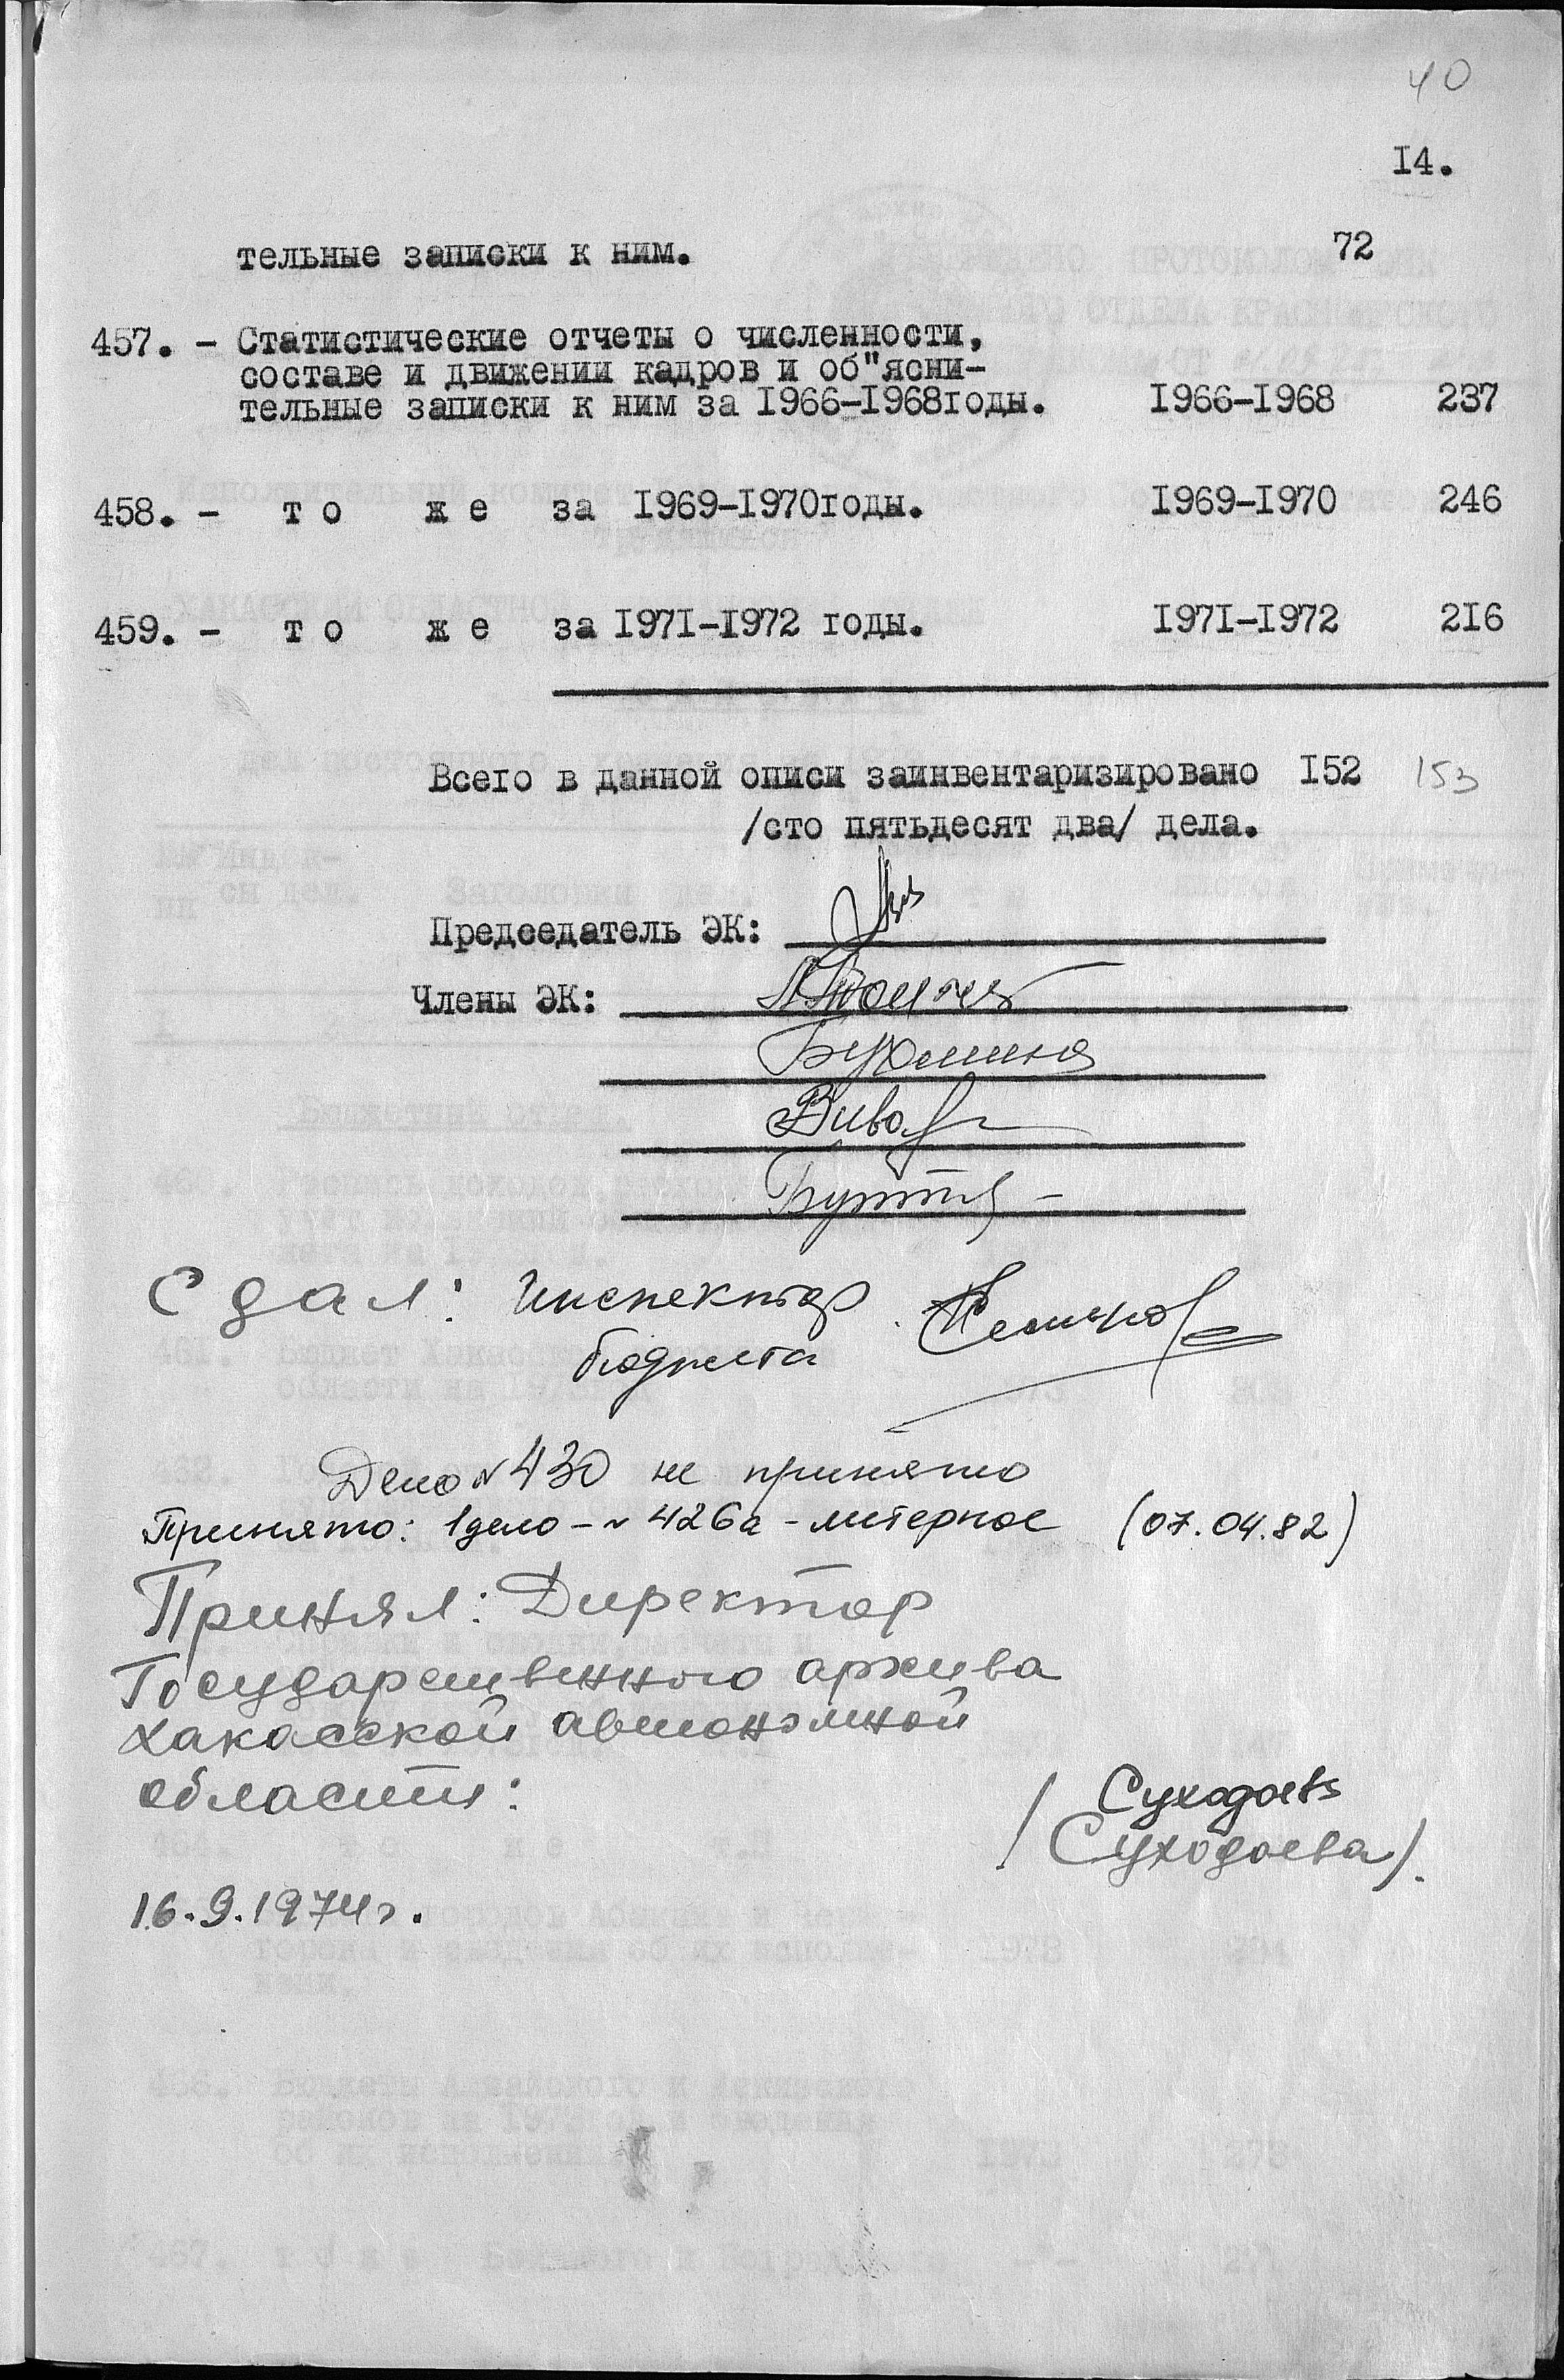 40
14.
тельные записки к ним. 72
457. - Статистические отчеты о численности,
составе и движении кадров и об"ясни-
тельные записки к ним за 1966-1968годы. 1966-1968 237
458. - т о ж е за 1969-1970годы. 1969-1970 246
459. - т о ж е за 1971-1972 годы. 1971-1972 216
Всего в данной описи заинвентаризировано 152 153
/сто пятьдесят два/ дела.
Председатель ЭК:
Члены ЭК:
Сдал: Инспектор
бюджета
Дело № 430 не принято
Принято: 1 дело - № 426а - литерное (07.04.82)
Принял: Директор
Государственного архива
Хакасской автономной
области:
Суходоев
/Суходоева/.
16.9.1974г.